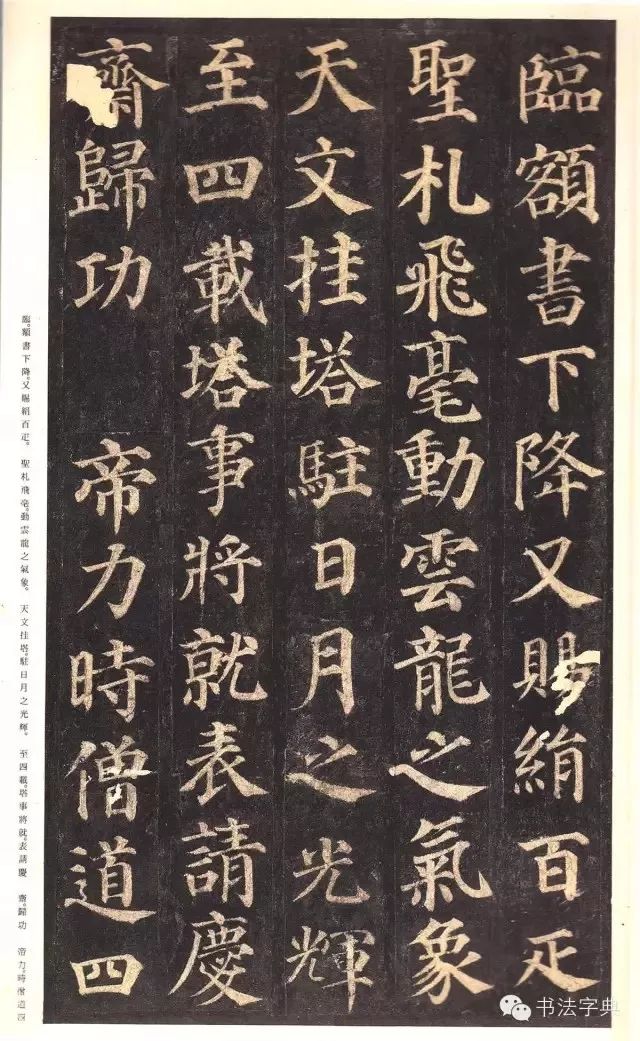 臨額書下降又賜絹百疋
聖札飛毫動雲龍之氣象
天文挂塔駐日月之光輝
至四載塔事將就表請慶
齋歸功 帝力時僧道四
臨。額書下降。又賜絹百疋。 聖札飛毫。動雲龍之氣象。 天文挂塔。駐日月之光輝。 至四載。塔事將就。表請慶 齋。歸功 帝力。時僧道四
书法字典